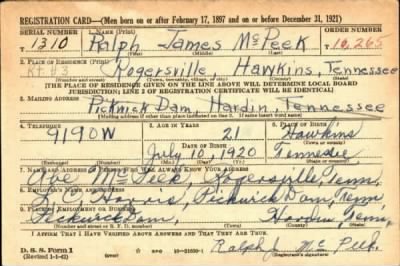 REGISTRATION CARD—(Men born on or after February 17, 1897 and on or before December 31, 1921)
SERIAL NUMBER 1. NAME (Print) ORDER NUMBER
1310 Ralph James McPeek 10,265
(First) (Middle) (Last)
2. PLACE OF RESIDENCE (Print)
Rt #3 Rogersville Hawkins, Tennessee
(Number and street) (Town, township, village, or city) (County) (State)
[THE PLACE OF RESIDENCE GIVEN ON THE LINE ABOVE WILL DETERMINE LOCAL BOARD
JURISDICTION; LINE 2 OF REGISTRATION CERTIFICATE WILL BE IDENTICAL]
3. MAILING ADDRESS
Pickwick Dam, Hardin, Tennessee
[Mailing address if other than place indicated on line 2. If same insert word same]
4. TELEPHONE 5. AGE IN YEARS 6. PLACE OF BIRTH
9190W 21 Hawkins
DATE OF BIRTH (Town or county)
July 10, 1920 Tennessee
(Exchange) (Number) (Mo.) (Day) (Yr.) (State or country)
7. NAME AND ADDRESS OF PERSON WHO WILL ALWAYS KNOW YOUR ADDRESS
McPeek, Rogersville, Tenn.
8. EMPLOYER'S NAME AND ADDRESS
Harris, Pickwick Dam, Tenn.
9. PLACE OF EMPLOYMENT OR BUSINESS
Pickwick Dam, Hardin, Tenn.
(Number and street or R. F. D. number) (Town) (County) (State)
I AFFIRM THAT I HAVE VERIFIED ABOVE ANSWERS AND THAT THEY ARE TRUE.
D. S. S. Form 1
(Revised 1-1-42) (over) 16—21630-1 Ralph J. McPeek
(Registrant's signature)